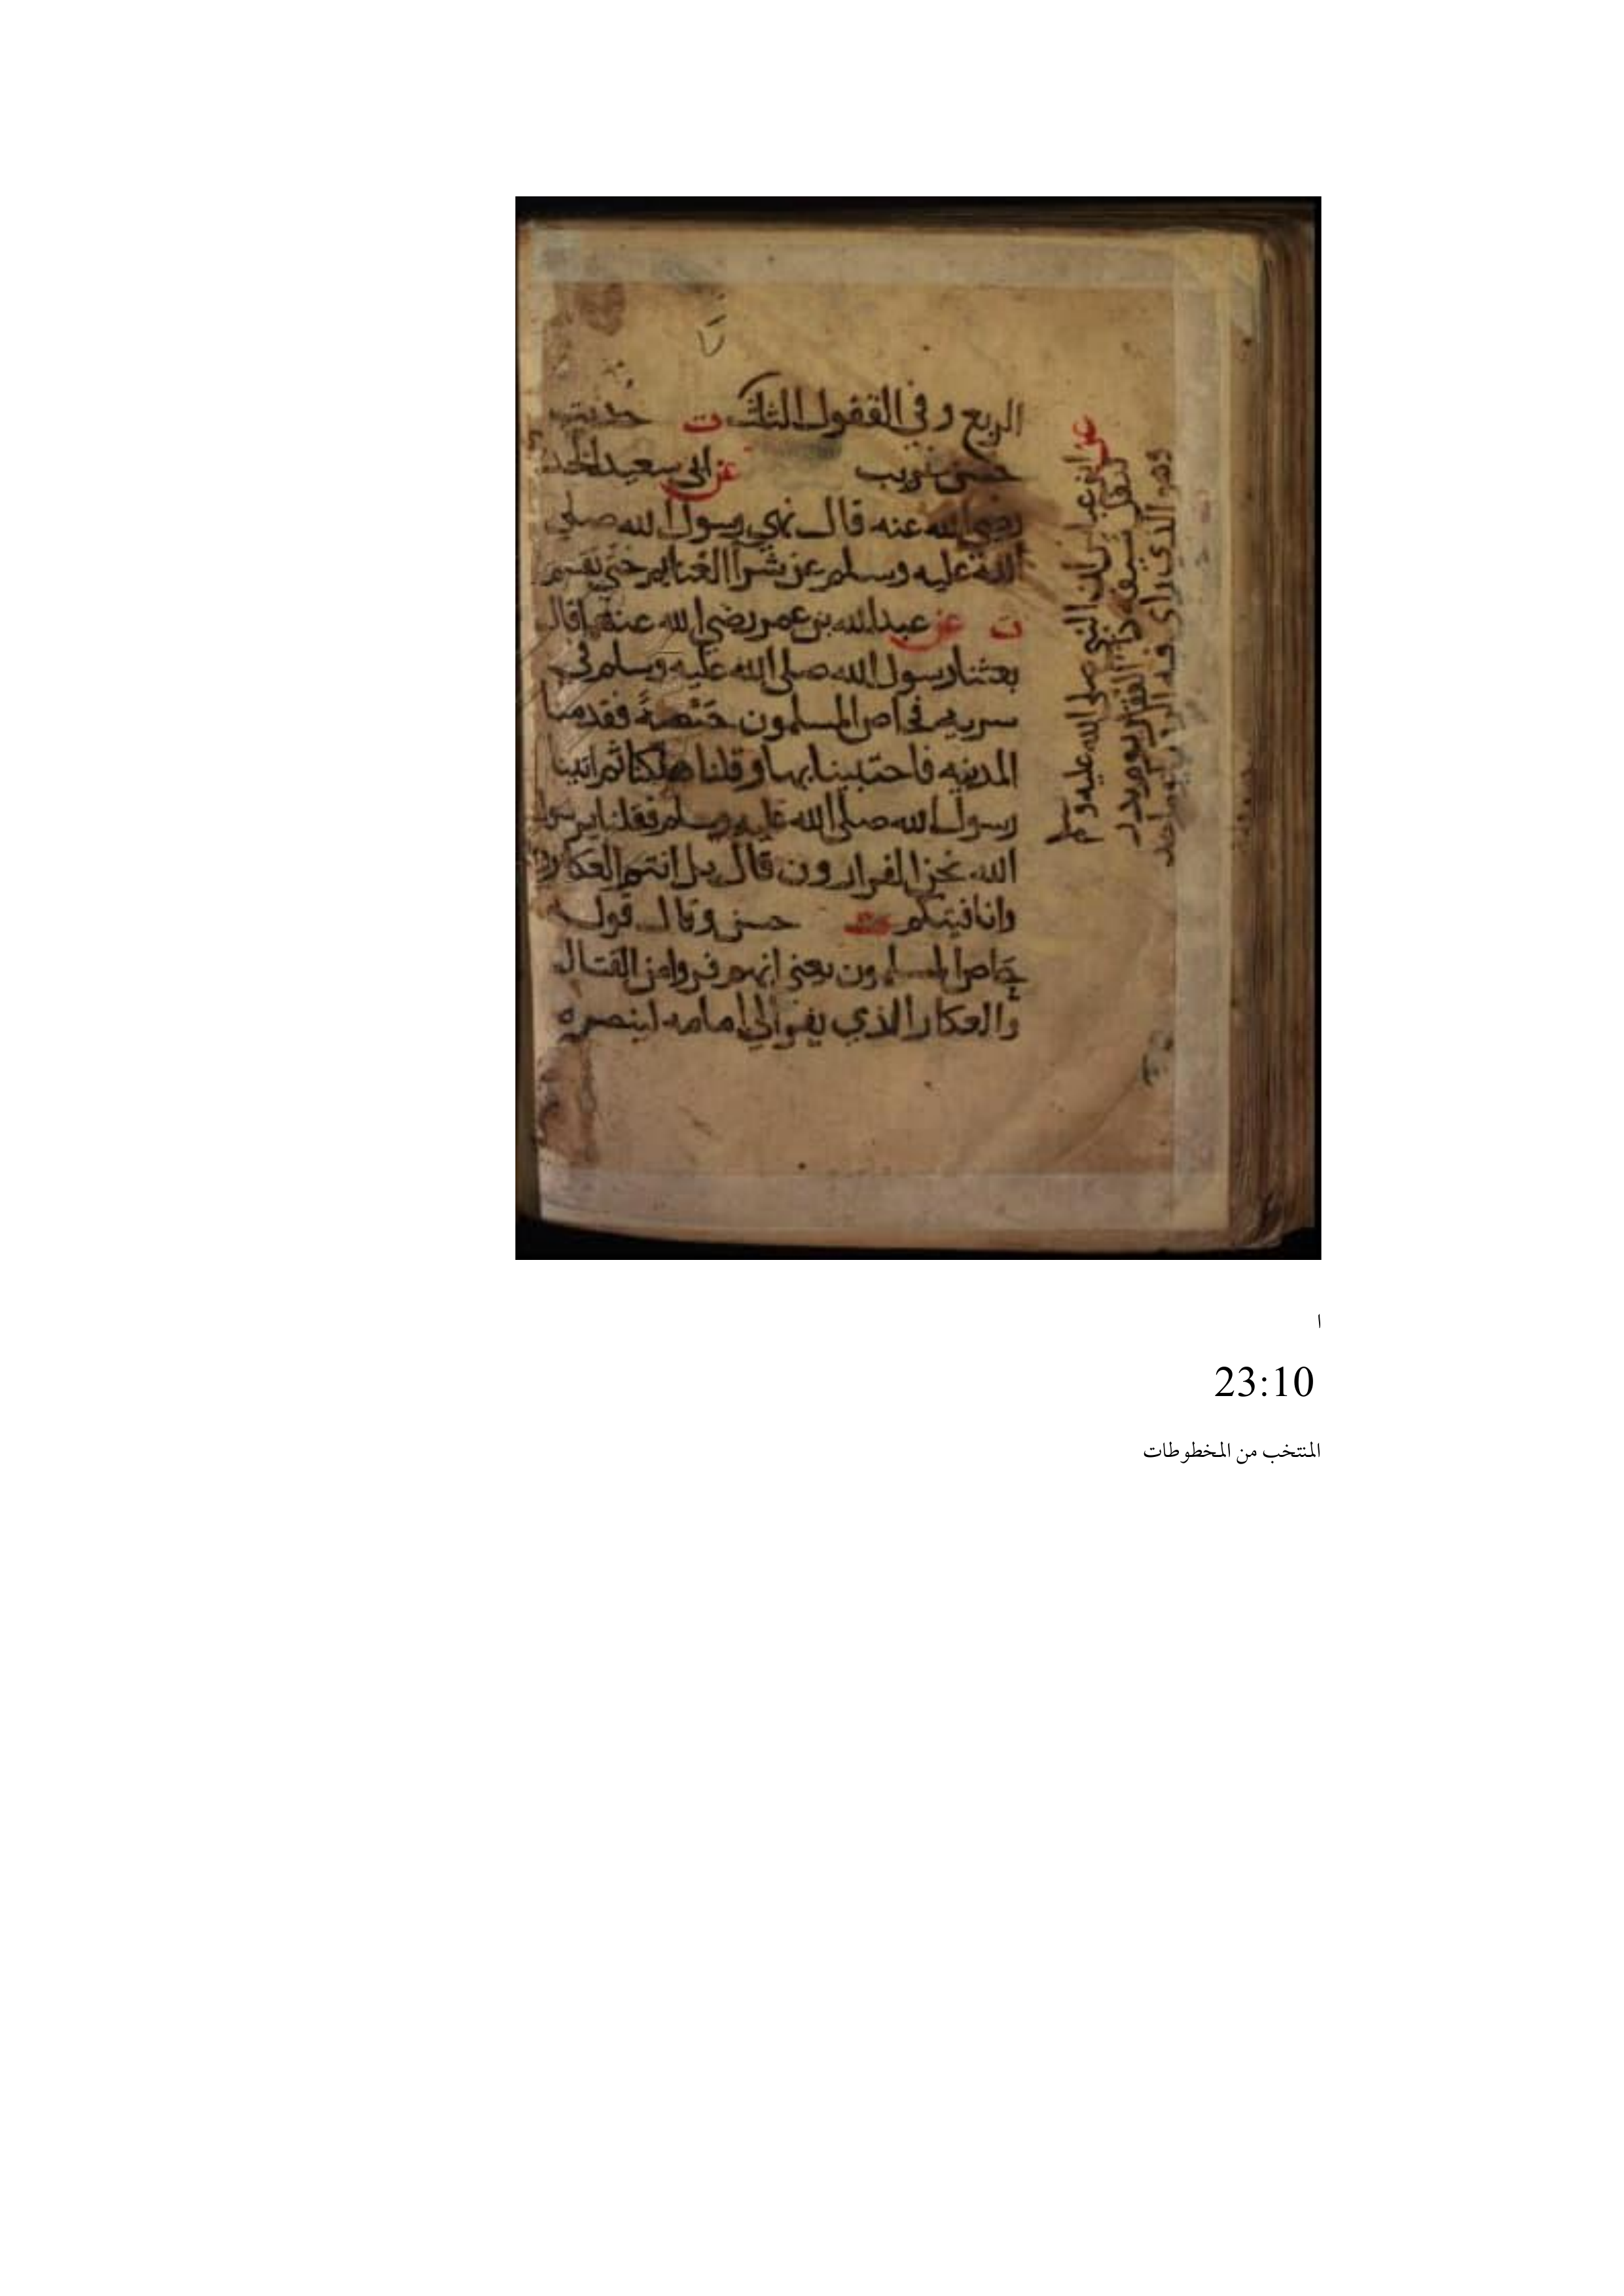 الربع وفي القفول الثلث ت حديث
حسن غريب عن ابي سعيد الخد
رضي الله عنه قال نهي رسول الله صلي
الله عليه وسلم عن شرآ الغنايم حتي تقسم
ت عن عبد الله بن عمر رضي الله عنهما قال
بعثنا رسول الله صلي الله عليه وسلم في
سريه فحاص المسلمون حَيْصَةً فقدمنا
المدينه فاحتبينا بها وقلنا هلكنا ثم اتينا
رسول الله صلي الله عليه وسلم فقلنا يرسول
الله نحن الفرارون قال بل انتم العكارون
وانا فيتكم ت حسن وقال قوله
حاص المسلمون يعني انهم فروا من القتال
والعكار الذي يفر الي امامه لينصره
عن ابن عباس ان النبي صلي الله عليه وسلم
تنفل سيفه ذا الفقار يوم بدر
وهو الذي راي فيه الرويا يوم احد
ا
23:10
المنتخب من المخطوطات